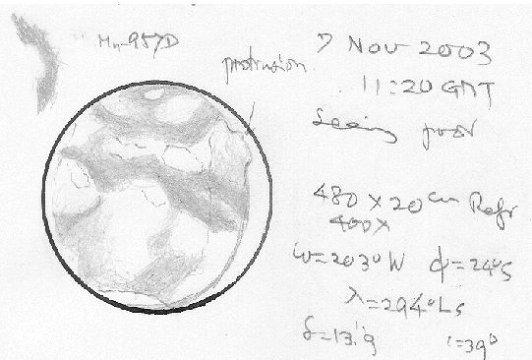 Mn-957D
protrusion
7 Nov 2003
11:20 GMT
Seeing poor
480 X 20 cm Refr
400X
ω=203°W φ=24°S
λ=294°Ls
δ=13".9 ι=39°